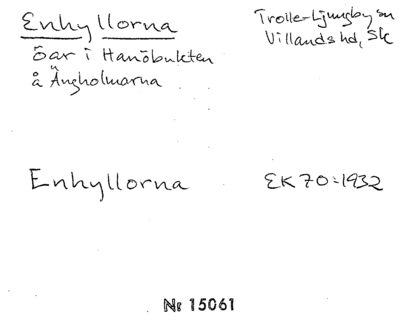 Enhyllorna
öar i Hanöbukten
å Ängholmarna
Trolle-Ljungby sn
Villands hd, Sk
Enhyllorna
EK 70:1932
Nr 15061